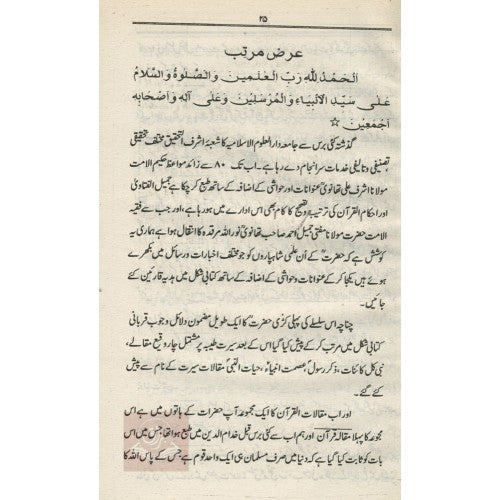 ۲۵
عرض مرتب
اَلْحَمْدُ لِلّٰهِ رَبِّ الْعٰلَمِيْنَ وَالصَّلٰوةُ وَالسَّلَامُ
عَلٰى سَيِّدِ الْاَنْبِيَاءِ وَالْمُرْسَلِيْنَ وَعَلٰى اٰلِهٖ وَاَصْحَابِهٖ
اَجْمَعِيْنَ ☆
گذشتہ کئی برس سے جامعہ دارالعلوم الاسلامیہ کا شعبۂ اشرف التحقیق مختلف تحقیقی
تصنیفی و تالیفی خدمات سرانجام دے رہا ہے۔ اب تک ۸۰ سے زائد مواعظ حکیم الامت
مولانا اشرف علی تھانویؒ عنوانات اور حواشی کے اضافہ کے ساتھ طبع کر چکا ہے جمیل الفتاویٰ
اور احکام القرآن کی ترتیب و تصحیح کا کام بھی اس ادارے میں ہو رہا ہے، اور جب سے فقیہ
الامت حضرت مولانا مفتی جمیل احمد صاحب تھانوی نور اللہ مرقدہ کا انتقال ہوا ہے ہماری یہ
کوشش ہے کہ حضرتؒ کے اُن علمی شاہپاروں کو جو مختلف اخبارات و رسائل میں بکھرے
ہوئے ہیں یکجا کر کے عنوانات و حواشی کے اضافہ کے ساتھ کتابی شکل میں ہدیہ قارئین کئے
جائیں۔
چنانچہ اس سلسلے کی پہلی کڑی حضرتؒ کا ایک طویل مضمون دلائل وجوب قربانی
کتابی شکل میں مرتب کر کے پیش کیا گیا اس کے بعد سیرت طیبہ پر مشتمل چار وقیع مقالے،
نبی کل کائنات، ذکر رسولؐ، عصمت انبیاءؑ، حیات النبیؐ مقالات سیرت کے نام سے پیش
کئے گئے۔
اور اب مقالات القرآن کا ایک مجموعہ آپ حضرات کے ہاتھوں میں ہے اس
مجموعہ کا پہلا مقالہ قرآن اور ہم اب سے کئی برس قبل خدام الدین میں طبع ہوا تھا جس میں اس
بات کو ثابت کیا گیا ہے کہ دنیا میں صرف مسلمان ہی ایک واحد قوم ہے جس کے پاس اللہ کا